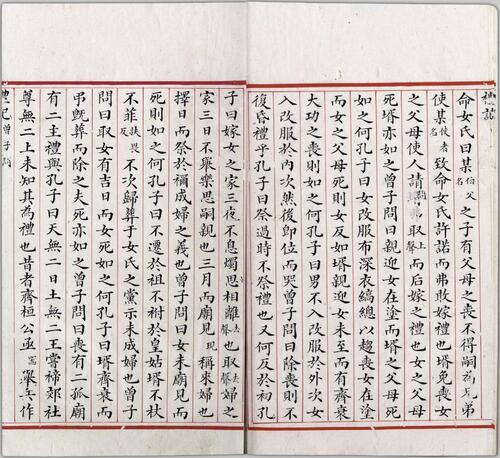 禮記
命女氏曰某伯名父之子有父母之喪不得嗣為兄弟
使某使者名致命女氏許諾而弗敢嫁禮也壻免喪女
之父母使人請壻弗取上聲而后嫁之禮也女之父母
死壻亦如之曾子問曰親迎女在塗而壻之父母死
如之何孔子曰女改服布深衣縞總以趨喪女在塗
而女之父母死則女反如壻親迎女未至而有齊衰
大功之喪則如之何孔子曰男不入改服於外次女
入改服於內次然後即位而哭曾子問曰除喪則不
復昏禮乎孔子曰祭過時不祭禮也又何反於初孔
子曰嫁女之家三夜不息燭思相離去聲也取去聲婦之
家三日不舉樂思嗣親也三月而廟見現稱來婦也
擇日而祭於禰成婦之義也曾子問曰女未廟見而
死則如之何孔子曰不遷於祖不祔於皇姑壻不杖
不菲扶畏反不次歸葬于女氏之黨示未成婦也曾子
問曰取女有吉日而女死如之何孔子曰壻齊衰而
弔既葬而除之夫死亦如之曾子問曰喪有二孤廟
有二主禮與孔子曰天無二日土無二王嘗禘郊社
尊無二上未知其為禮也昔者齊桓公亟器舉兵作
禮記曾子問